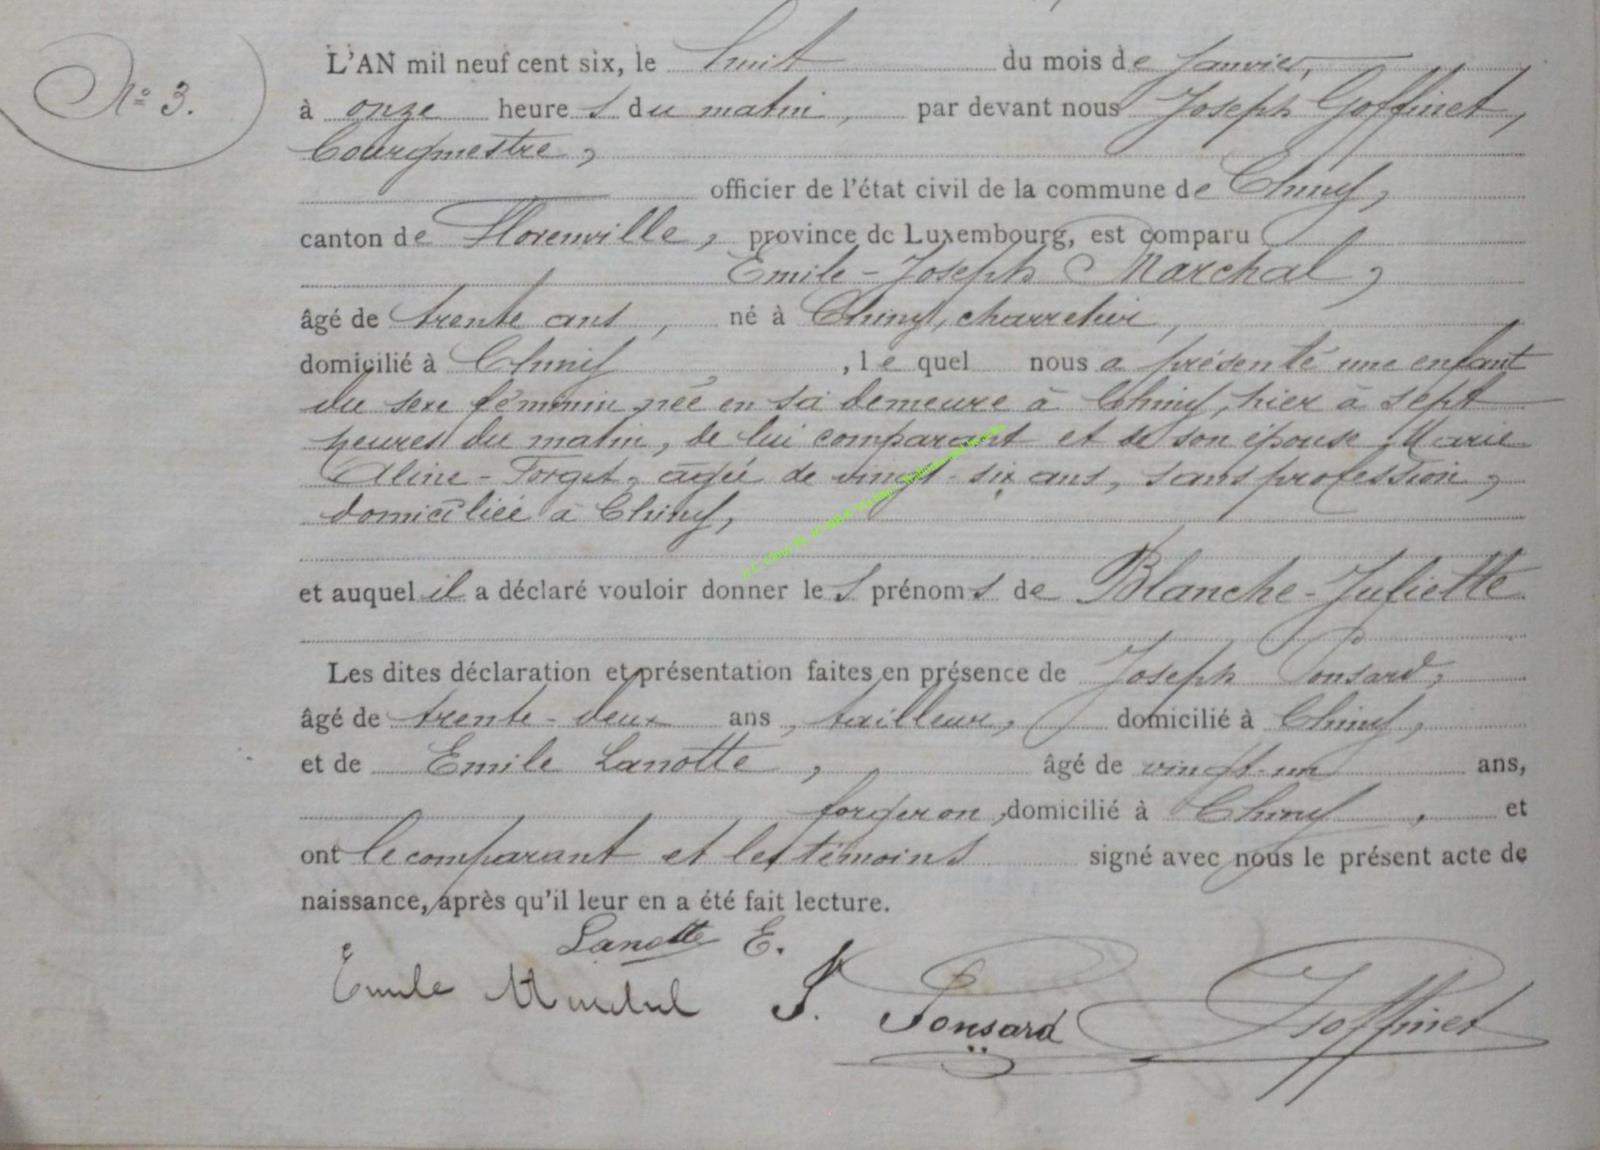 N° 3.
L'AN mil neuf cent six, le huit du mois de Janvier,
à onze heures du matin, par devant nous Joseph Goffinet,
bourgmestre,
officier de l'état civil de la commune de Chiny,
canton de Florenville, province de Luxembourg, est comparu
Emile-Joseph Marchal,
âgé de trente ans, né à Chiny, charretier,
domicilié à Chiny, le quel nous a présenté une enfant
du sexe féminin, née en sa demeure à Chiny, hier à sept
heures du matin, de lui comparant et de son épouse Marie
Aline-Forget, agée de vingt-six ans, sans profession,
domiciliée à Chiny,
et auquel il a déclaré vouloir donner les prénoms de Blanche-Juliette
Les dites déclaration et présentation faites en présence de Joseph Ponsard,
âgé de trente-deux ans, tailleur, domicilié à Chiny,
et de Emile Lanotte, âgé de vingt-un ans,
forgeron, domicilié à Chiny, et
ont le comparant et les témoins signé avec nous le présent acte de
naissance, après qu'il leur en a été fait lecture.
Lanotte E.
Emile Marchal J. Ponsard Goffinet